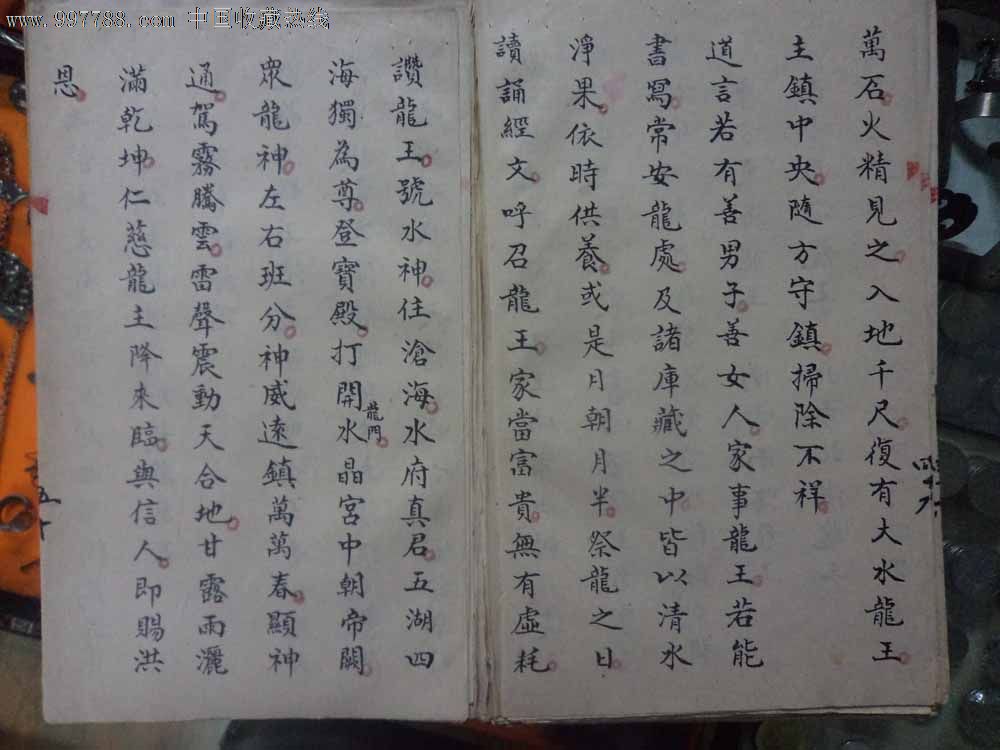 www.997788.com 中国收藏热线
萬石火精見之入地千尺復有大水龍王
主鎮中央隨方守鎮掃除不祥
道言若有善男子善女人家事龍王若能
書寫常安龍處及諸庫藏之中皆以清水
淨果依時供養或是月朝月半祭龍之日
讀誦經文呼召龍王家當富貴無有虛耗
讚龍王號水神住滄海水府真君五湖四
海獨為尊登寶殿打開水晶宮中朝帝闕
龍門
眾龍神左右班分神威遠鎮萬萬春顯神
通駕霧騰雲雷聲震動天合地甘露雨灑
滿乾坤仁慈龍主降來臨與信人即賜洪
恩